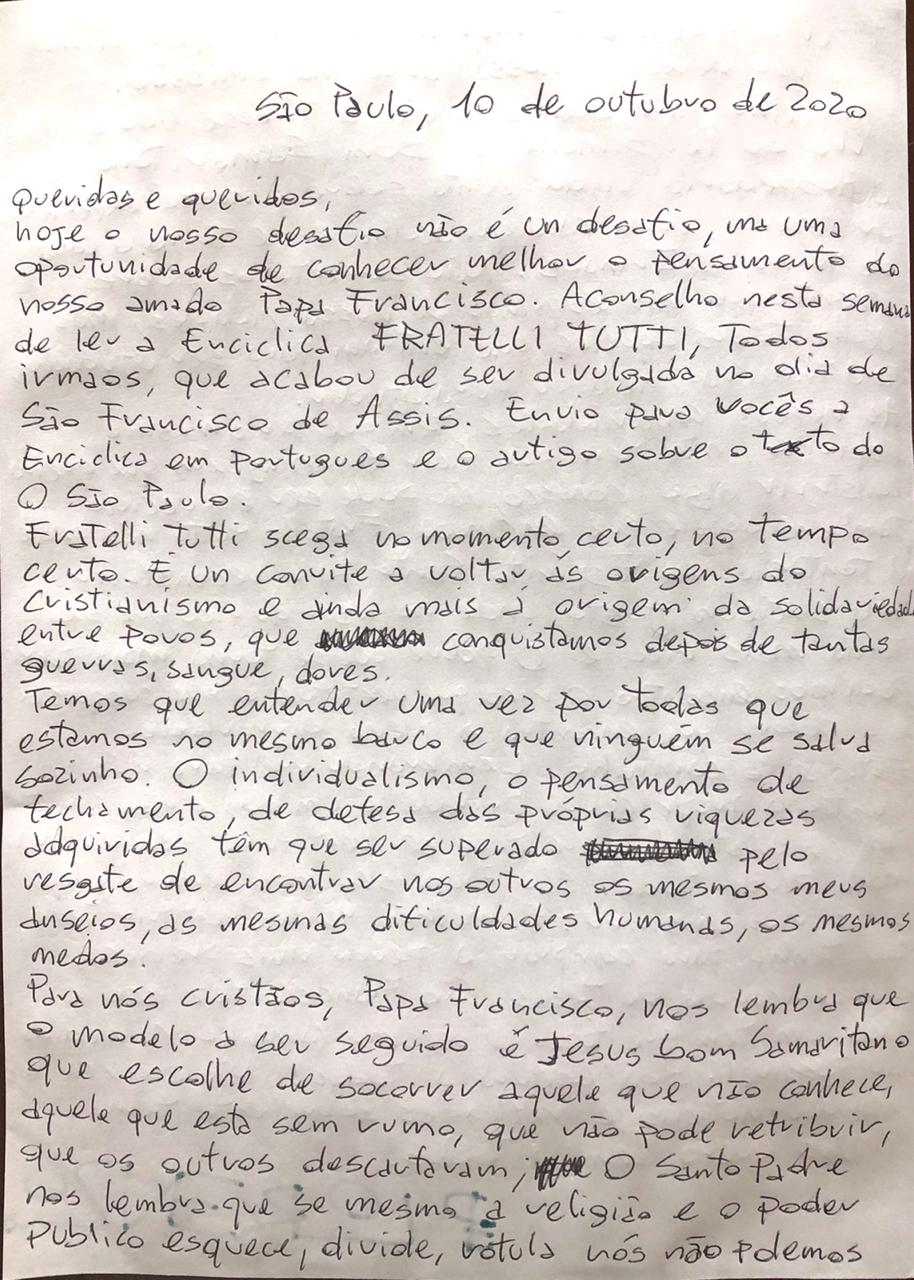 São Paulo, 10 de outubro de 2020
Queridas e queridos,
hoje o nosso desafio não é un desafio, ma uma
oportunidade de conhecer melhor o pensamento do
nosso amado Papa Francisco. Aconselho nesta semana
de ler a Enciclica FRATELLI TUTTI, Todos
irmaos, que acabou de ser divulgada no dia de
São Francisco de Assis. Envio para vocês a
Enciclica em Portugues e o artigo sobre o texto do
O São Paulo.
Fratelli Tutti scega no momento certo, no tempo
certo. E un convite a voltar ás origens do
Cristianismo e ainda mais á origem da solidariedade
entre povos, que conquistamos depois de tantas
guerras, sangue, dores.
Temos que entender uma vez por todas que
estamos no mesmo barco e que ninguém se salva
sozinho. O individualismo, o pensamento de
fechamento, de defesa das próprias riquezas
adquiridas têm que ser superado pelo
resgate de encontrar nos outros os mesmos meus
anseios, as mesmas dificuldades humanas, os mesmos
medos.
Para nós cristãos, Papa Francisco, nos lembra que
o modelo a ser seguido é Jesus bom Samaritano
que escolhe de socorrer aquele que não conhece,
aquele que esta sem rumo, que não pode retribuir,
que os outros descartaram; O Santo Padre
nos lembra que se mesmo a religião e o poder
Publico esquece, divide, rotula nós não pdemos